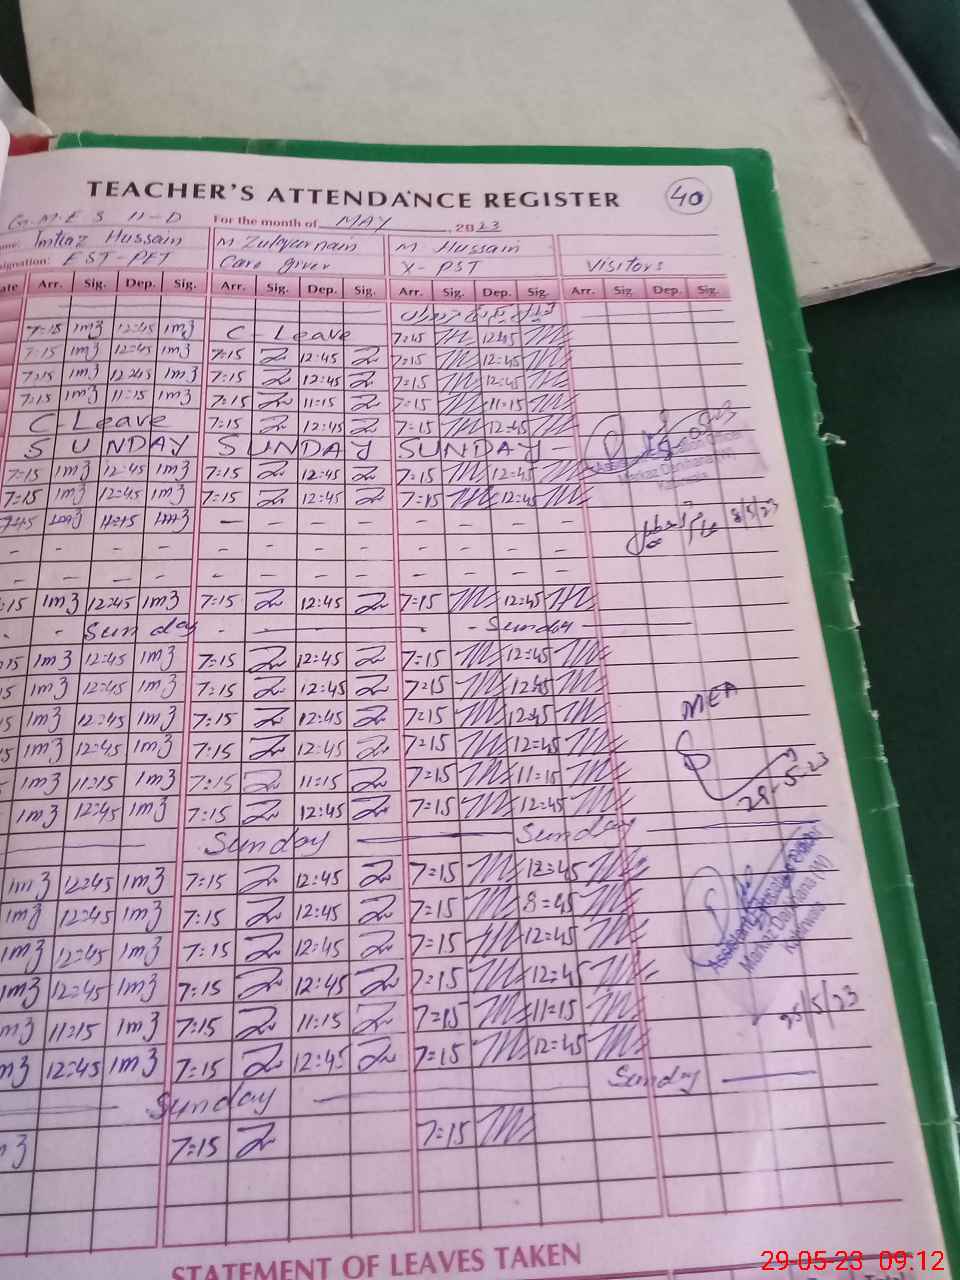 TEACHER'S ATTENDANCE REGISTER 40
G.M.E S 11-D For the month of MAY, 2023
Imtiaz Hussain M Zulqurnain M Hussain
signation: EST-PET Care giver X-PST Visitors
ate Arr. Sig. Dep. Sig. Arr. Sig. Dep. Sig. Arr. Sig. Dep. Sig. Arr. Sig. Dep. Sig.
7=15 1m3 12=45 1m3 C-Leave 7=15 12=45
7=15 1m3 12=45 1m3 7=15 12=45 7=15 12=45
7=15 1m3 12=45 1m3 7=15 12=45 7=15 12=45
7=15 1m3 11=15 1m3 7=15 11=15 7=15 11=15
C-Leave 7=15 12=45 7=15 12=45
SUNDAY SUNDAY SUNDAY -
7=15 1m3 12=45 1m3 7=15 12=45 7=15 12=45
7=15 1m3 12=45 1m3 7=15 12=45 7=15 12=45
1m3 11=15 1m3 - - - - - - - - 8/5/23
- - - - - - - - - - -
- - - - - - - - - - -
:15 1m3 12=45 1m3 7=15 12:45 7=15 12=45
- - Sunday - - - Sunday
15 1m3 12=45 1m3 7=15 12:45 7=15 12=45
5 1m3 12=45 1m3 7=15 12:45 7=15 12=45 MEA
5 1m3 12=45 1m3 7=15 12:45 7=15 12=45
5 1m3 12=45 1m3 7=15 12:45 7=15 12=45
1m3 11=15 1m3 7=15 11=15 7=15 11=15
1m3 12=45 1m3 7=15 12:45 7=15 12=45
Sunday Sunday
1m3 12=45 1m3 7=15 12=45 7=15 12=45
1m3 12=45 1m3 7=15 12=45 7=15 8=45
1m3 12=45 1m3 7=15 12=45 7=15 12=45
1m3 12=45 1m3 7=15 12=45 7=15 12=45
m3 11=15 1m3 7=15 11=15 7=15 11=15 25/5/23
m3 12=45 1m3 7=15 12=45 7=15 12=45
Sunday Sunday
3 7=15 7=15
STATEMENT OF LEAVES TAKEN
29-05-23 09:12